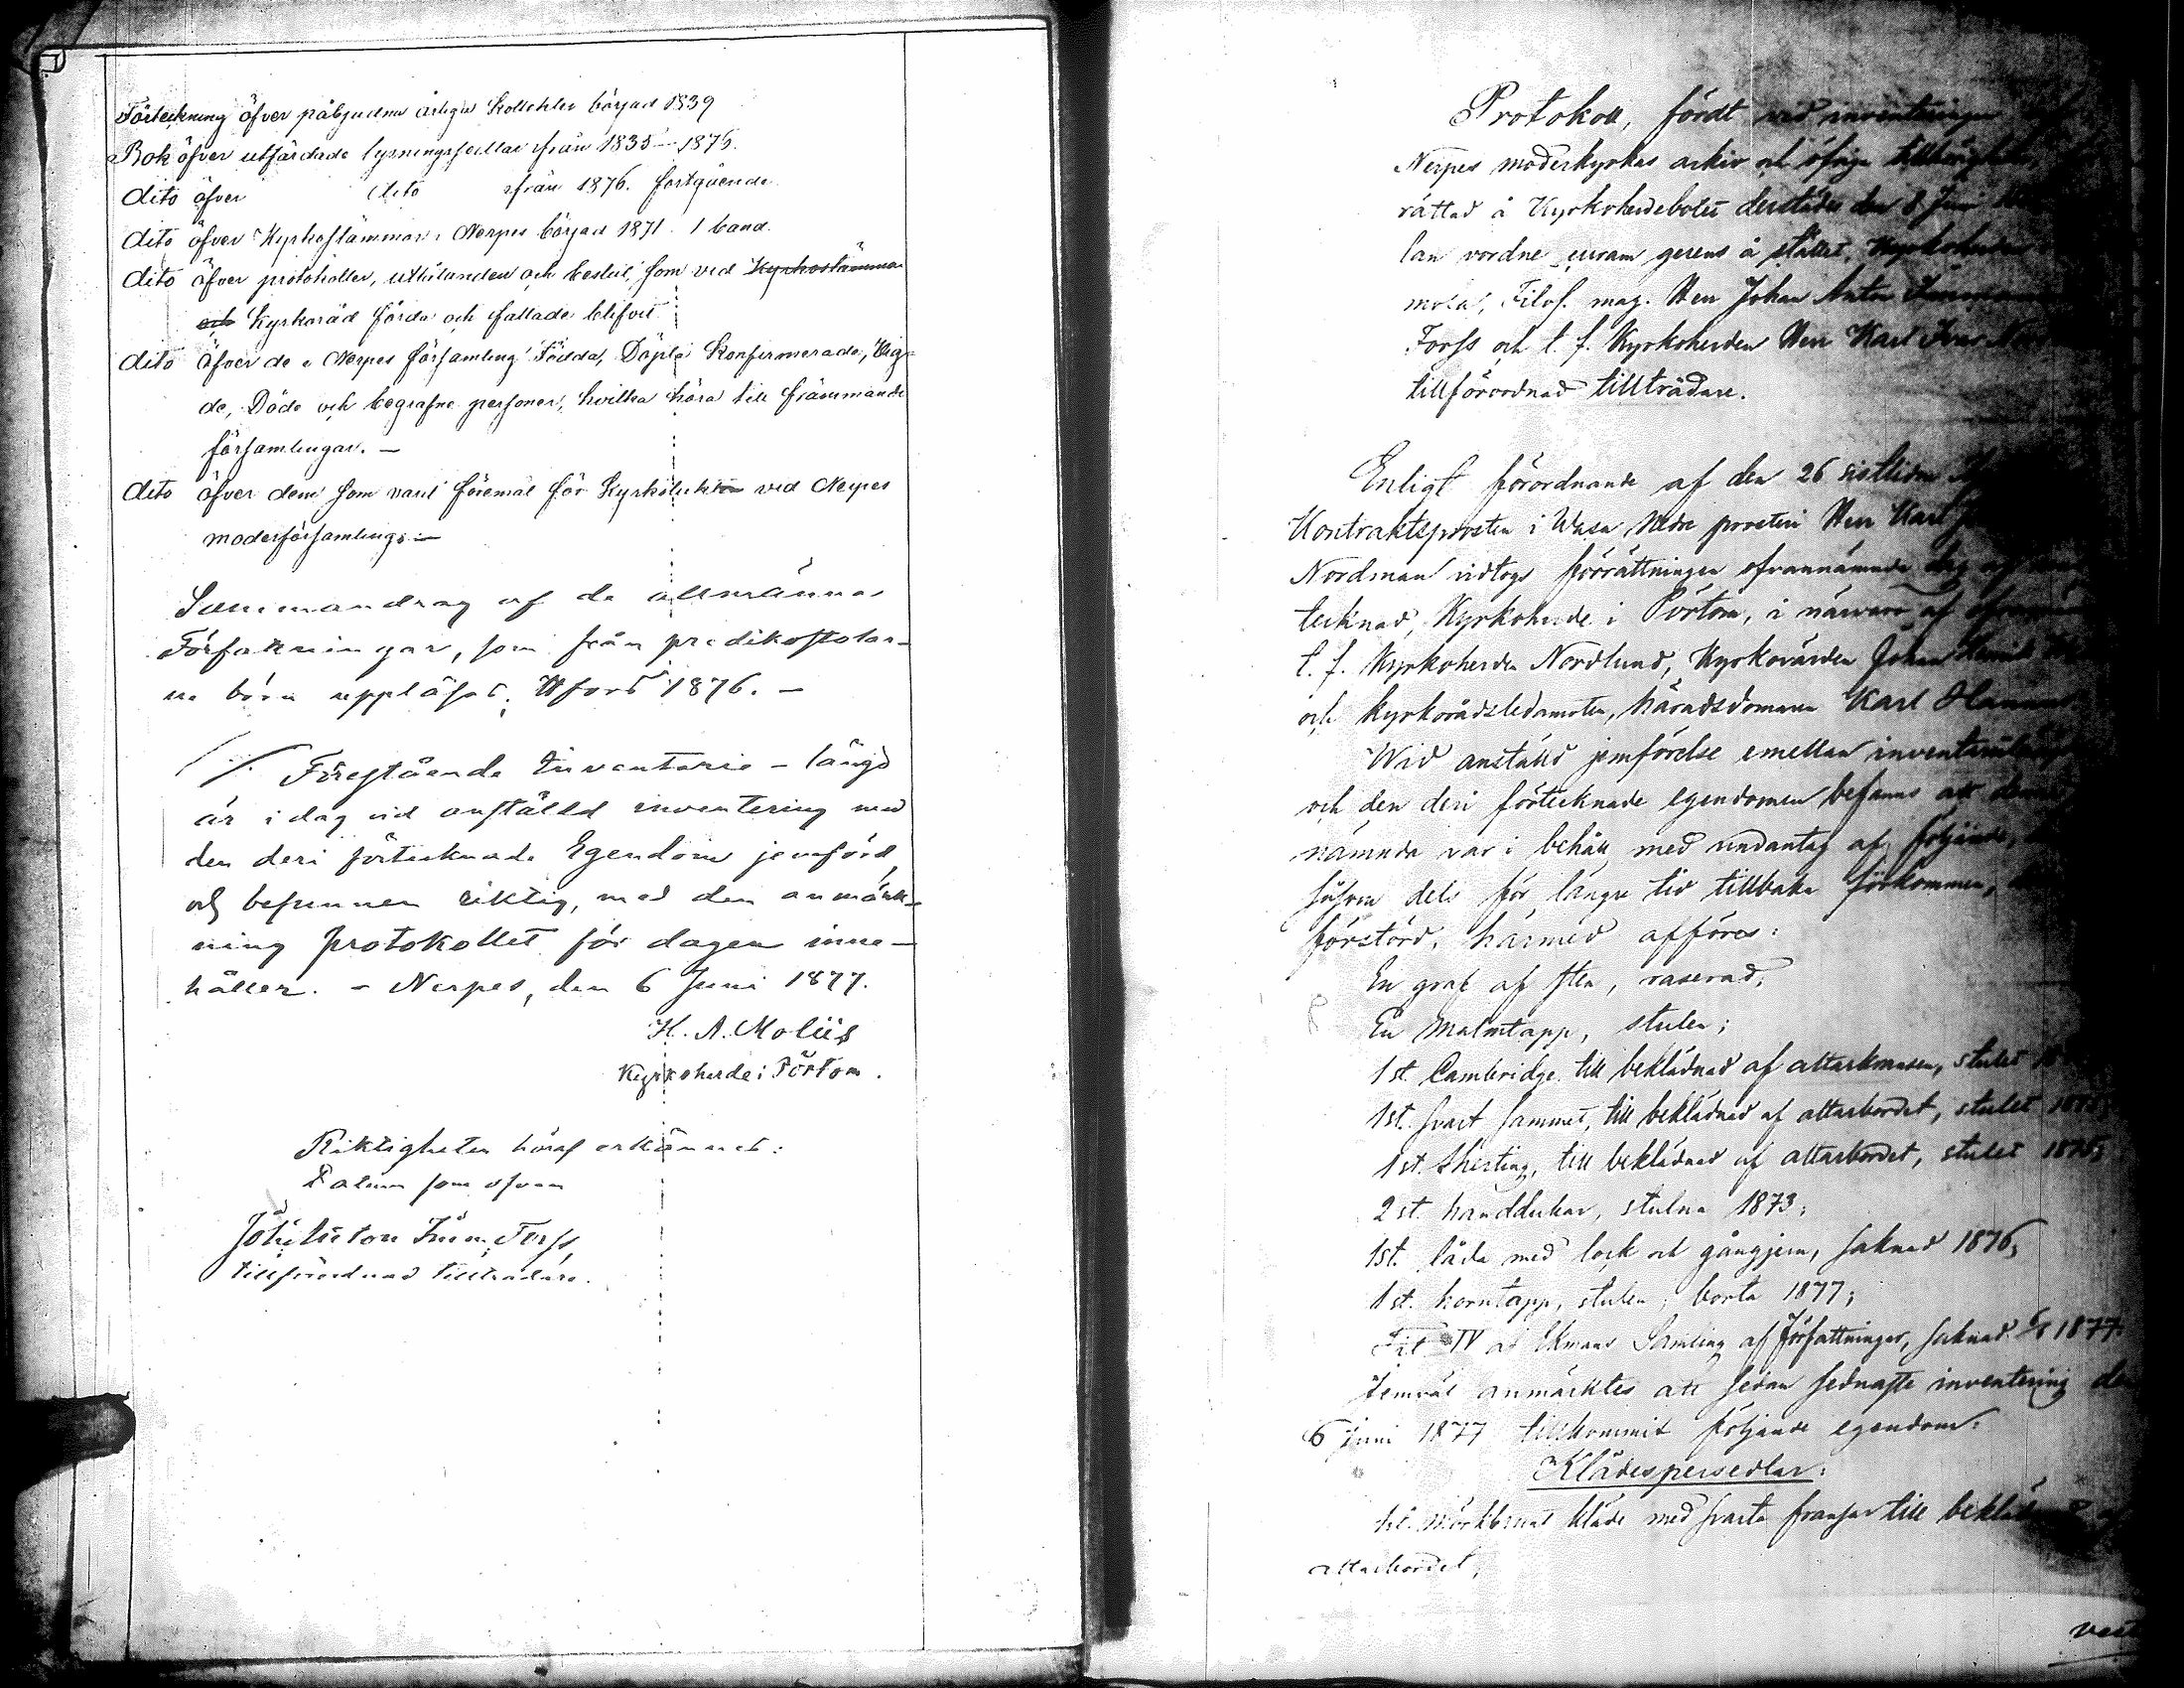 Förteckning öfver påbjudna årliga Kollekter började 1839
Bok öfver utfärdade lysningssedlar från 1835–1876.
dito öfver dito från 1876. fortgående
dito öfver Kyrkostämmor i Nerpes börjad 1871. 1 band.
dito öfver protokoller, utlåtanden och beslut, som vid Kyrkostämma
och Kyrkoråd förda och fattade blifvit
dito öfver de i Nerpes församling Födda, Döpta Konfirmerade, Vig-
de, Döde och begrafne personer, hvilka höra till främmande
församlingar. —
dito öfver dem som varit föremål för Kyrkotukt vid Nerpes
moderförsamling. —
Sammandrag af de allmänna
Författningar, som från predikostolar-
ne böra uppläsas; H:fors 1876. —
Förestående Inventarie-längd
är i dag vid anställd inventering med
den deri förtecknade Egendom jemförd,
och befunnen riktig, med den anmärk-
ning protokollet för dagen inne-
håller. – Nerpes, den 6 Juni 1877.
K. A. Moliis
Kyrkoherde i Pörtom.
Riktigheten häraf erkännes:
Datum som ofvan
Joh: Anton Imm: Forss,
tillförordnad tillträdare.
Protokoll, fördt vid inventeringen
Nerpes moderkyrkas arkiv och öfriga
rättad å Kyrkoherdebolet derstädes den 8 Juni
lan vordne curam gerens å stället, Kyrkoherden
mola, Filos. mag. Herr Johan Anton
Forss och t. f. Kyrkoherden Herr Karl Ivar
tillförordnad tillträdare.
Enligt förordnande af den 26 sistlidne
Kontraktsprosten i Wasa Nedre prosteri Herr Karl
Nordman vidtogs förrättningen ofvannämnde dag
tecknad, Kyrkoherde i Pörtom, i närvaro af
t. f. Kyrkoherden Nordlund, Kyrkovärden Johan
och kyrkorådsledamoten, häradsdomaren Karl
Wid anställd jemförelse emellan
och den deri förtecknade egendomen befanns att
nämnda var i behåll med undantag af följande,
såsom dels för längre tid tillbaka förkommen,
förstörd, härmed afföres:
En graf af sten, raserad;
En Malmtapp, stulen;
1 st. Cambridge till beklädnad af altarkransen, stulet
1 st. svart sammet, till beklädnad af altarbordet, stulet
1 st. sherting, till beklädnad af altarbordet, stulet
2 st. handdukar, stulna 1873;
1 st. låda med lock och gångjern, saknad 1876;
1 st. korntapp, stulen; borta 1877;
IV af Ekmans Samling af författningar, saknad 1877.
Jemväl anmärktes att sedan sednaste inventering
6 juni 1877 tillkommit följande egendom:
Klädespersedlar:
mörkbrunt kläde med svarta fransar till
altarbordet;